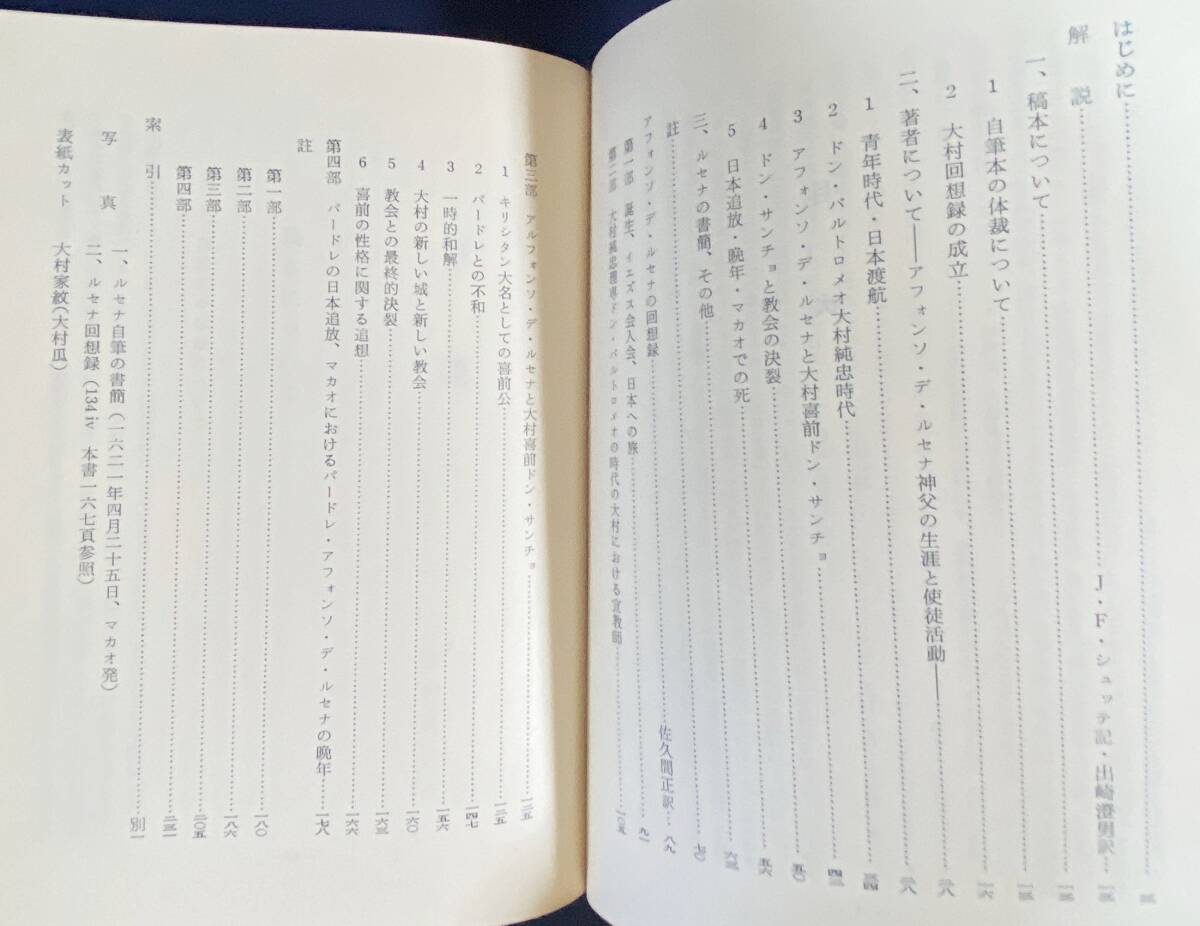 はじめに
解説 J・F・シュッテ記・出崎澄男訳
一、稿本について
1 自筆本の体裁について 一六
2 大村回想録の成立 二八
二、著者について――アフォンソ・デ・ルセナ神父の生涯と使徒活動―― 二八
1 青年時代・日本渡航
2 ドン・バルトロメオ大村純忠時代
3 アフォンソ・デ・ルセナと大村喜前ドン・サンチョ 五〇
4 ドン・サンチョと教会の決裂 五六
5 日本追放・晩年・マカオでの死 六三
三、ルセナの書簡、その他 七〇
註
アフォンソ・デ・ルセナの回想録 佐久間正訳 八九
第一部 誕生、イエズス会入会、日本への旅 九一
第二部 大村純忠理専ドン・バルトロメオの時代の大村における宣教師 一〇五
第三部 アルフォンソ・デ・ルセナと大村喜前ドン・サンチョ 一二五
1 キリシタン大名としての喜前公 一二五
2 パードレとの不和 一四七
3 一時的和解 一五六
4 大村の新しい城と新しい教会 一六〇
5 教会との最終的決裂 一六三
6 喜前の性格に関する追想 一六六
第四部 パードレの日本追放、マカオにおけるパードレ・アフォンソ・デ・ルセナの晩年 一七八
註
第一部 一八〇
第二部 一八六
第三部 二〇五
第四部 二三一
索引 別一
写真 一、ルセナ自筆の書簡（一六二一年四月二十五日、マカオ発）
二、ルセナ回想録（134iv 本書一六七頁参照）
表紙カット 大村家紋（大村瓜）